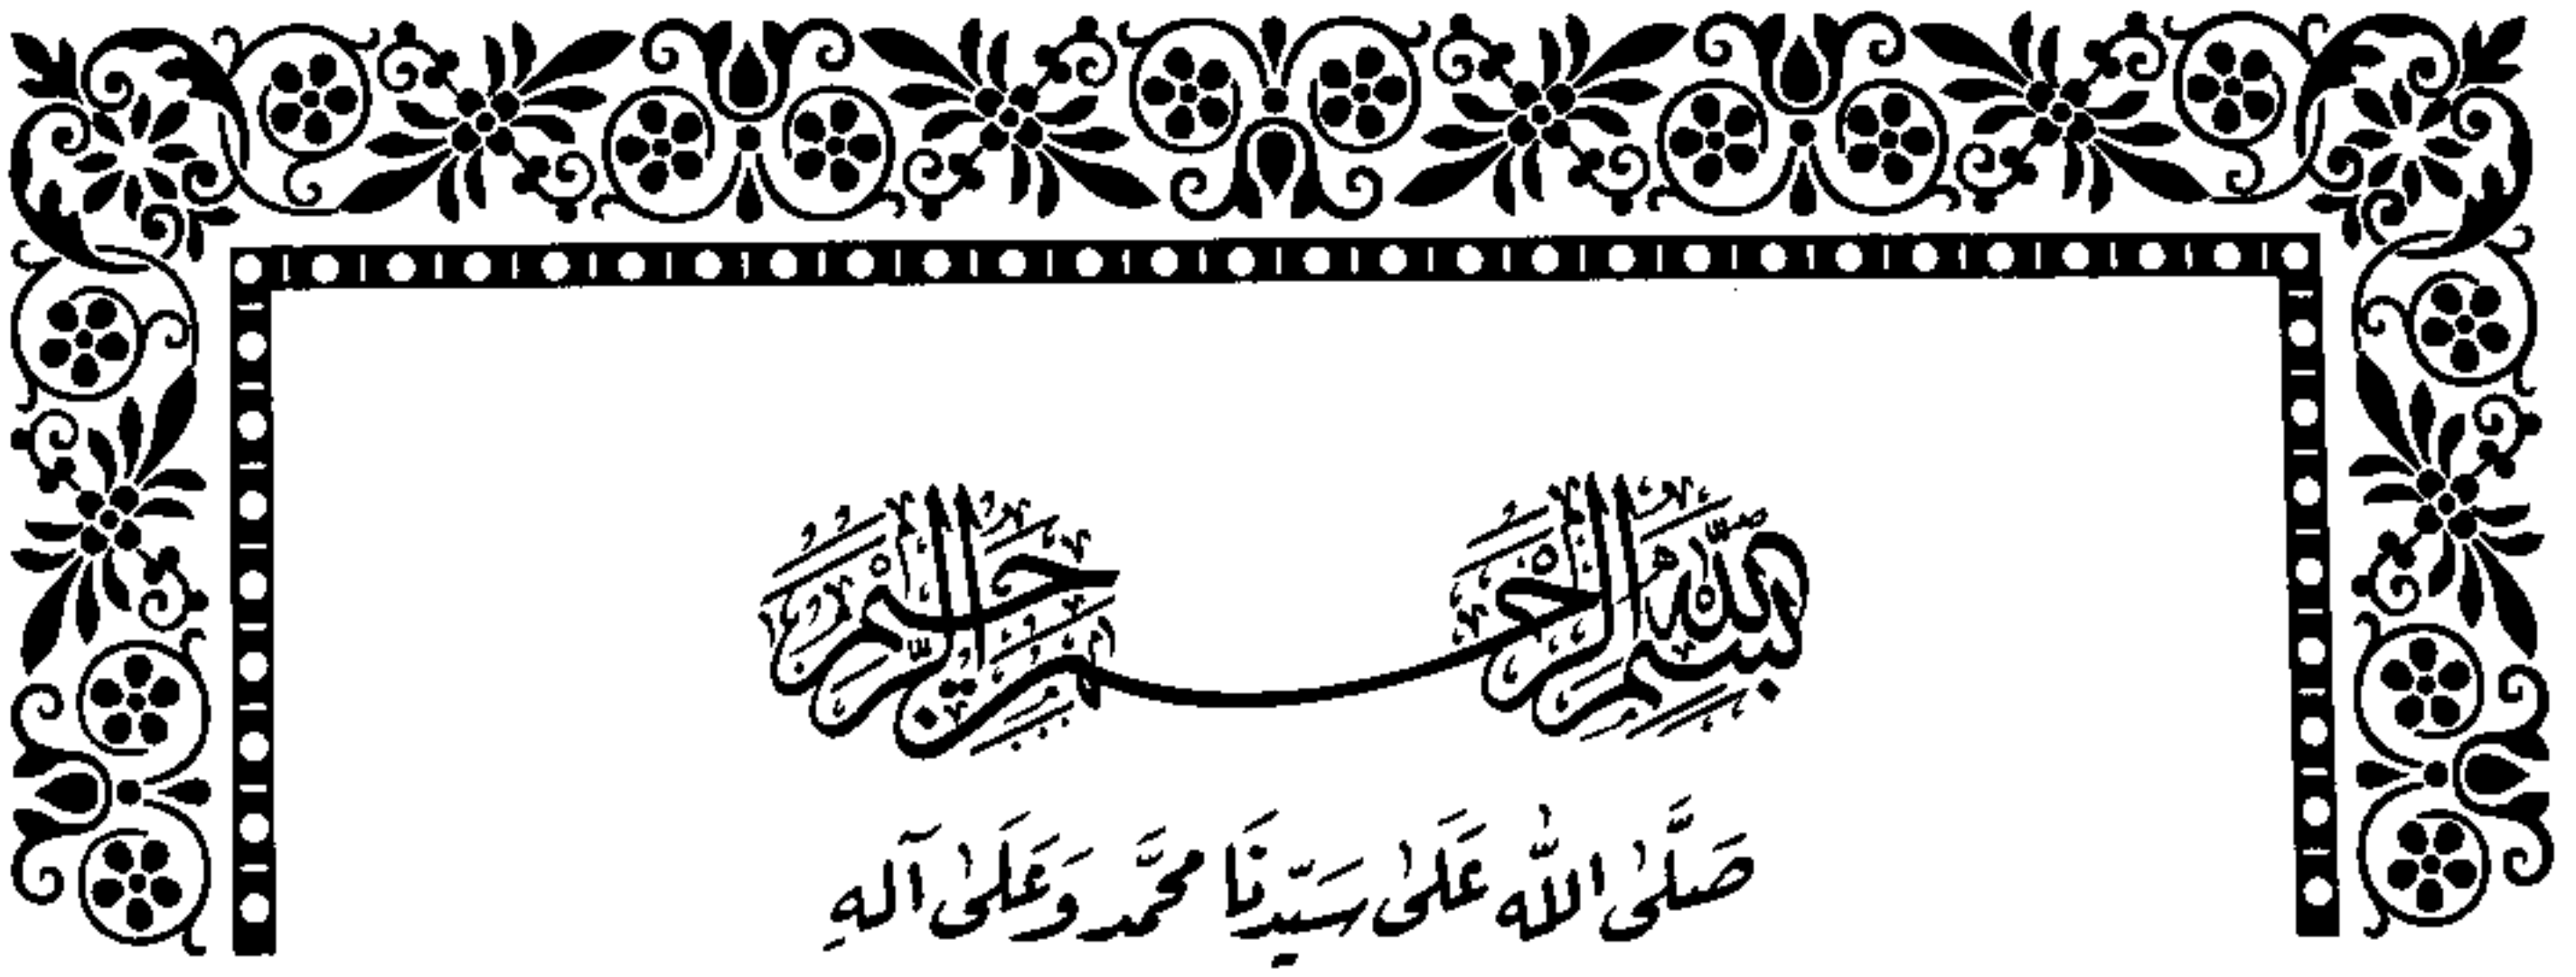 بسم الله الرحمن الرحيم
صَلَّىٰ اللّٰه عَلَىٰ سَيّدِنَا محمَّد وَعَلَىٰ آلهِ